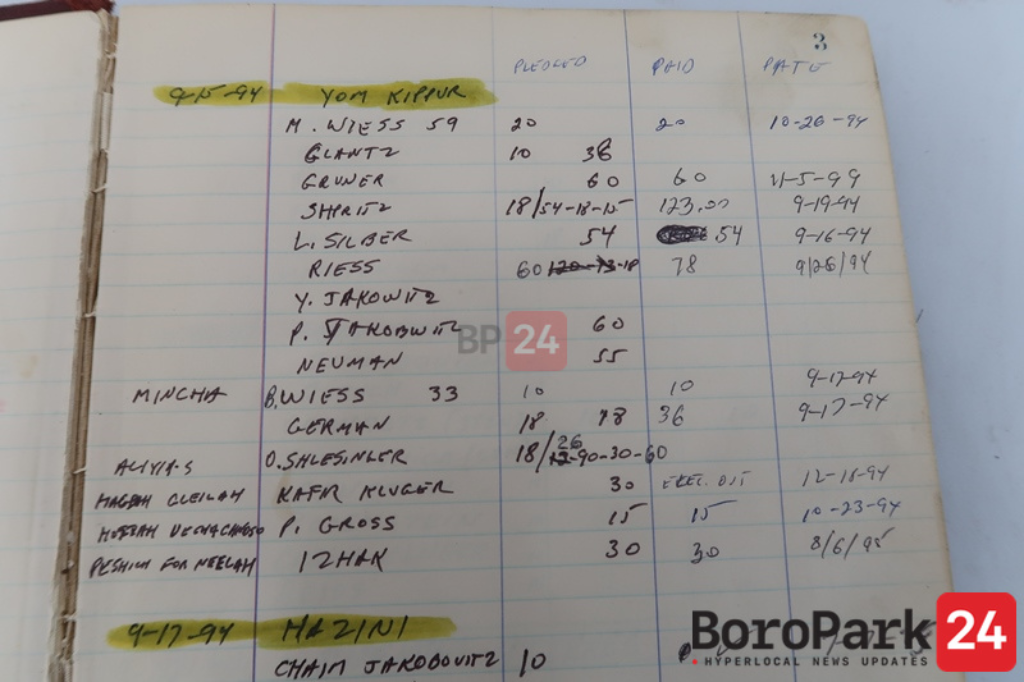 3
PLEDGED PAID DATE
9-15-94 YOM KIPPUR
M. WIESS 59 20 20 10-26-94
GLANTZ 10 36
GRUNER 60 60 11-5-99
SHPRITZ 18/54-18-15 123.00 9-19-94
L. SILBER 54 54 9-16-94
RIESS 60 78 9/26/94
Y. JAKOWITZ
P. JAKOBWITZ 60
BP 24
NEUMAN 55
MINCHA B. WIESS 33 10 10 9-17-94
GERMAN 18 18 36 9-17-94
ALIYIA-S O. SHLESINGER 18/26-90-30-60
HAGBAH GLEILAH KAFR KLUGER 30 12-16-94
P. GROSS 15 15 10-23-94
PESHICH FOR NEELAH IZHAK 30 30 8/6/95
9-17-94 HAZINI
CHAIM JAKOBOVITZ 10
BoroPark 24
HYPERLOCAL NEWS UPDATES